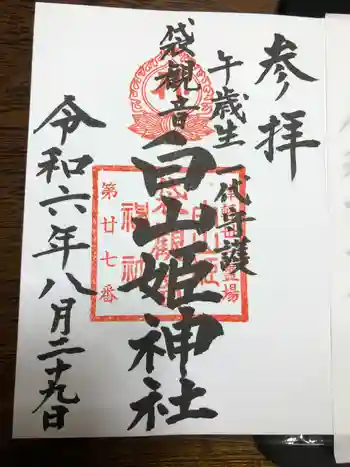 参拝
午歳生一代守護
袋観音
白山姫神社
令和六年八月二十九日
第廿七番